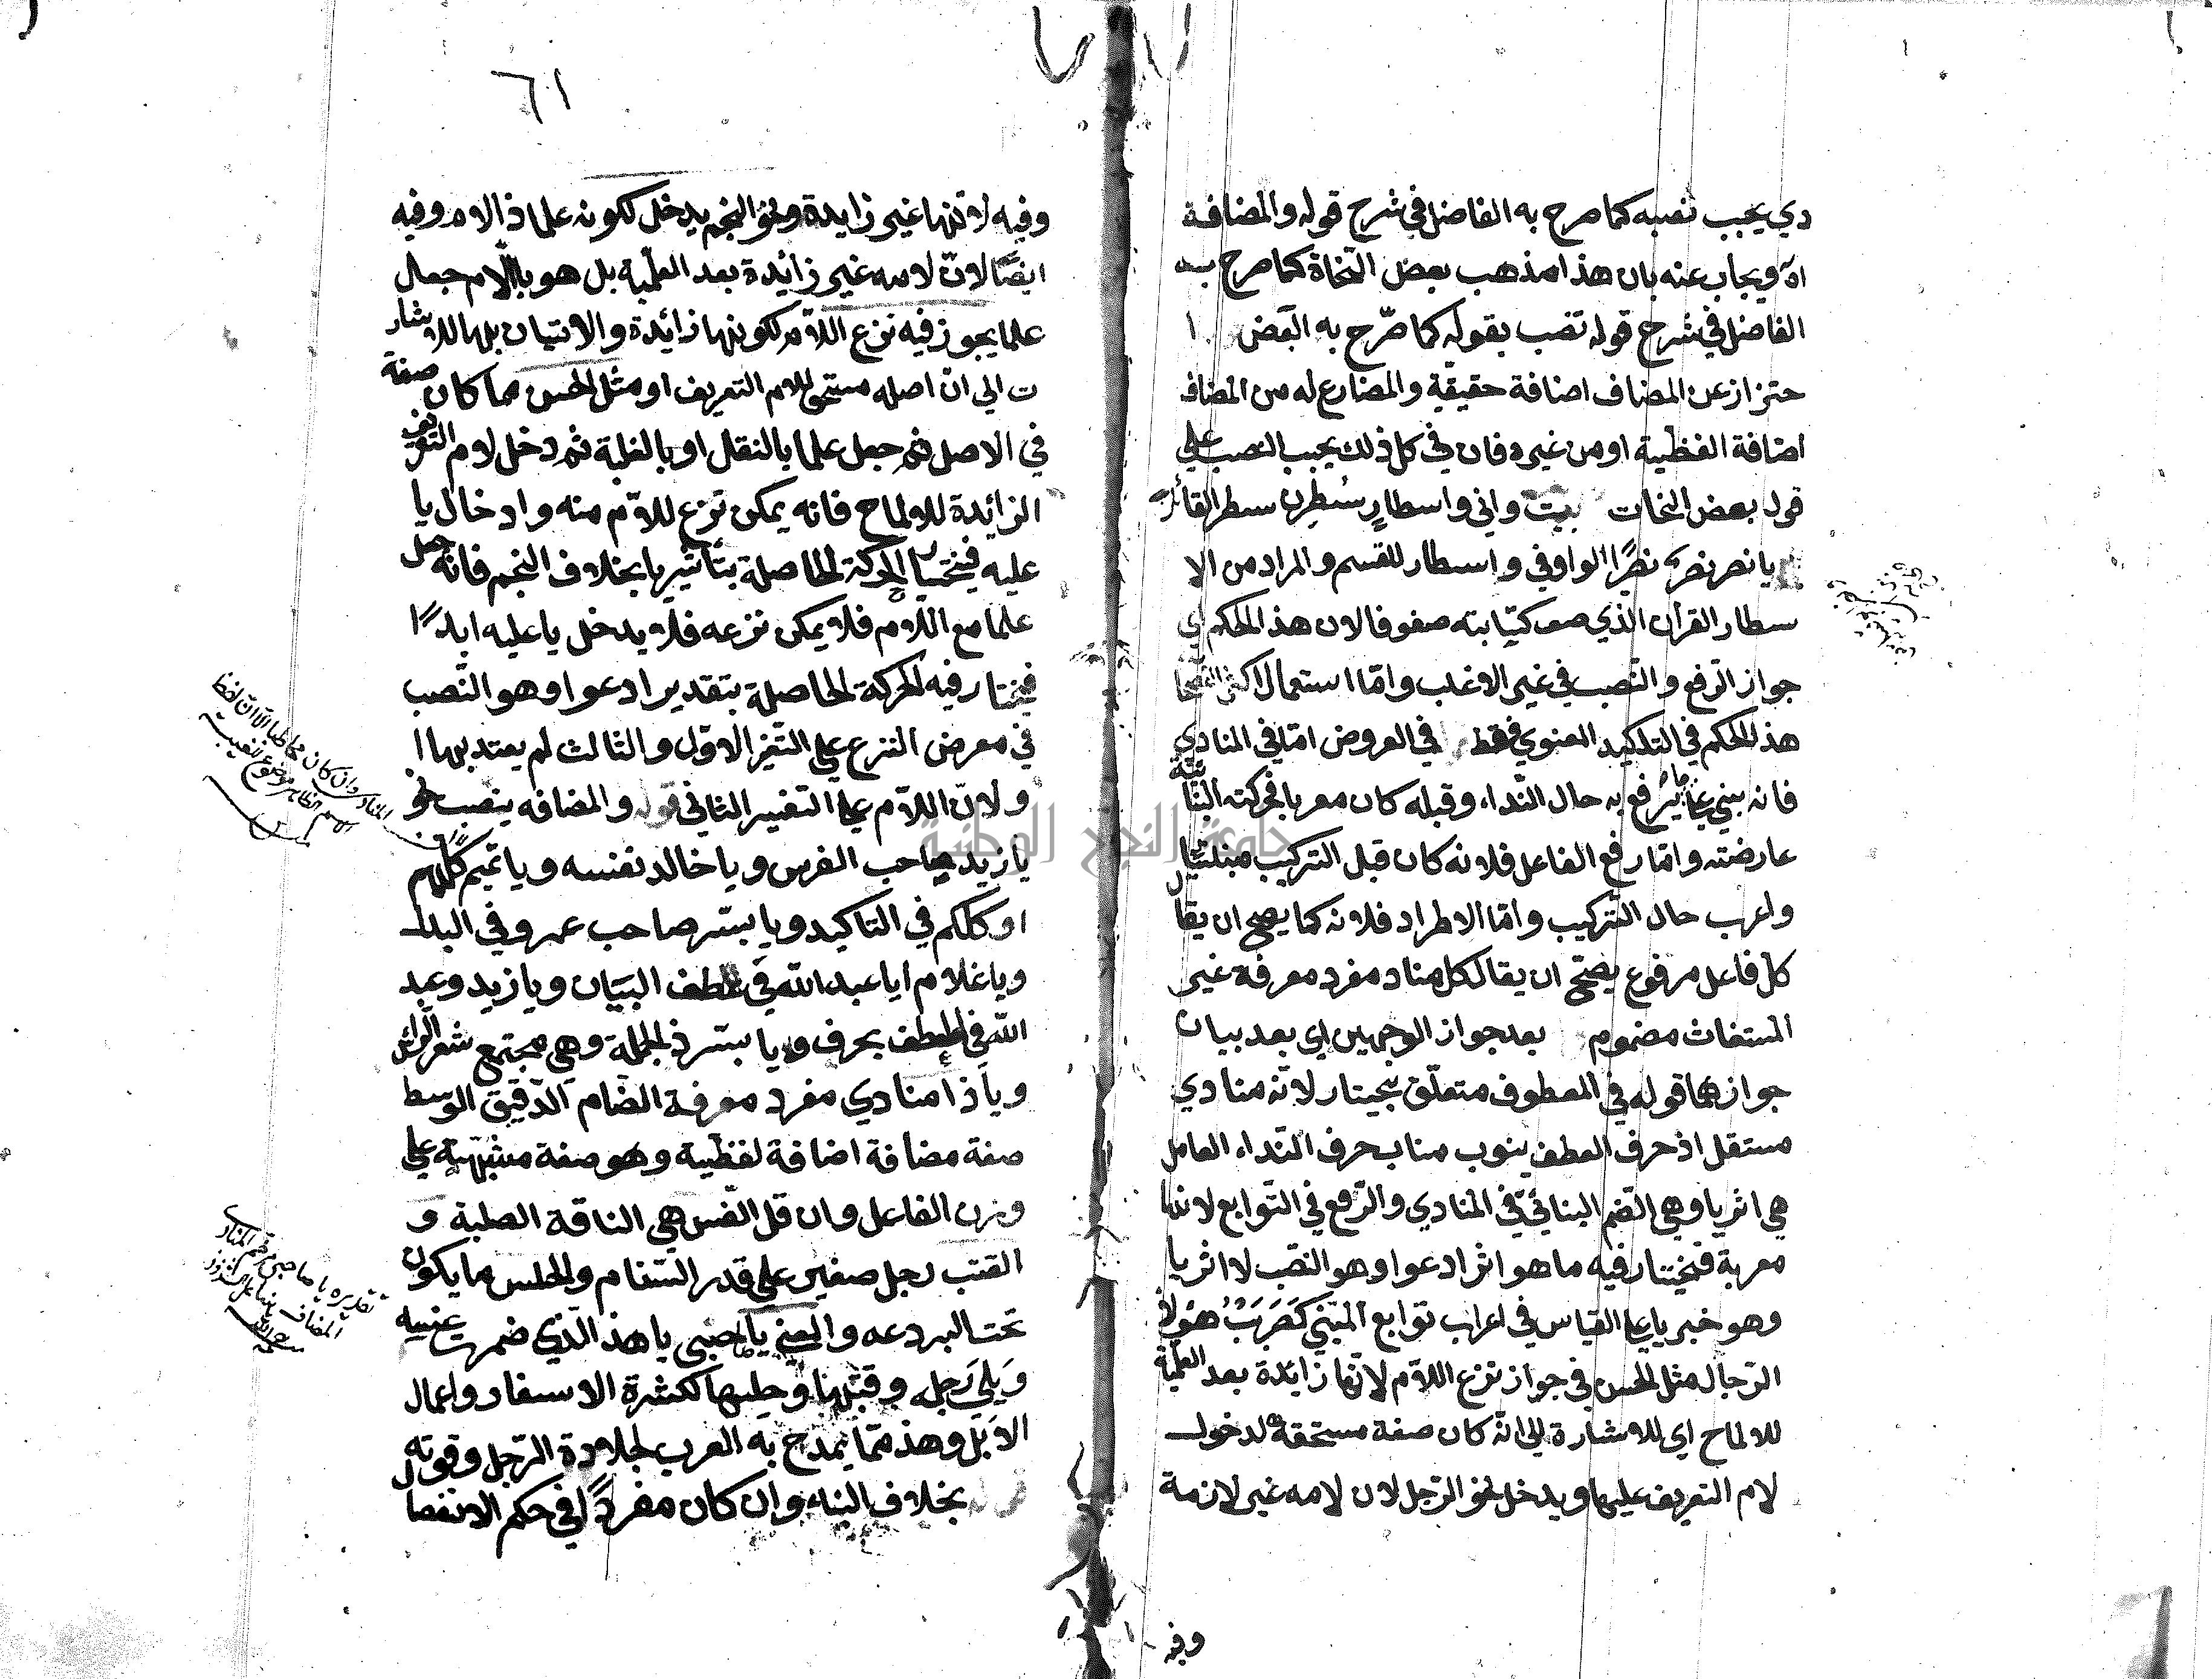 دي يجب نصبه كما صرح به الفاضل في شرح قوله والمضافة
اه ويجاب عنه بان هذا مذهب بعض النحاة كما صرح به
الفاضل في شرح قوله تصب بقوله كما صرّح به البعض ا
حتراز عن المضاف اضافة حقيقية والمضارع له من المضاف
اضافة الفظية او من غيره فان في كل ذلك يجب النصب علي
قول بعض النحات بيت واني واسطارٍ سُطِرن سطر القائل
يا نصر نصر نصرًا الواو في واسطار للقسم والمراد من الا
سطار القرأن الذي صف كتابته صفوفا لان هذ الحكم اي
جواز الرفع والنّصب في غير الاغلب وامّا استعمال اكثر الفصحا
هذ الحكم في التاكيد المعنوي فقط في العروض امّا في المنادي
فانه يبني علي ما يرفع به حال النّداء وقبله كان معربا فحركته البنائية
عارضته وامّا رفع الفاعل فلانه كان قبل التركيب مبنيّا
واعرب حال التّركيب وامّا الاطراد فلانه كما يصح ان يقال
كل فاعل مرفوع يصحّ ان يقال كل مناد مفرد معرفة غير
المستغاث مضموم بعد جواز الوجهين اي بعد بيان
جوازهما قوله في المعطوف متعلّق بيختار لانّه منادي
مستقل اذ حرف العطف ينوب مناب حرف النّداء العامل
هي اثر يا وهي الضّم البنائيّ في المنادي والرّفع في التّوابع لانها
معربة فيختار فيه ما هو اثر ادعوا وهو النصّب لا اثر يا
وهو خبر يا علي القياس في اعراب توابع المبني كضربت هؤلاء
الرّجال مثل الحسن في جواز نزع اللاّم لانّها زائدة بعد العلمية
للالماح اي للاشارة الي انّه كان صفة مستحقة لدخول
لام التعريف عليها ويدخل نحو الرّجل لان لامه غير لازمة
وفيه
٦١
وفيه لانّها غير زايدة ونحو النجم يدخل لكونه علما ذ الام وفيه
ايضًا لانّ لامه غير زائدة بعد العلمية بل هو باللام جعل
علما يجوز فيه نزع اللاّم لكونها زائدة والاتيان بها للاشار
ت الي انّ اصله مستحق للام التعريف او مثل الحسن مما كان صفة
في الاصل ثم جعل علما بالنقل او بالغلبة ثم دخل لام التعريف
الزائدة للالماح فانه يمكن نزع للاّم منه وادخال يا
عليه فيختار الحركة الحاصلة بتأثيرها بخلاف النجم فانّه جعل
علما مع اللاّم فلا يمكن نزعه فلا يدخل يا عليه ابدًا
فيختار فيه الحركة الحاصلة بتقدير ادعوا وهو النّصب
في معرض النزع علي التّغير الاوّل والثالث لم يعتد بها ا
ولانّ اللاّم علي التفسير الثاني قوله والمضافه ينصب نحو
يا زيد صاحب الفرس ويا خالد نفسه ويا تميم كلّهم
او كلكم في التاكيد ويا بشر صاحب عمرو في البدل
ويا غلام ابا عبد اللّه في عطف البيان ويا زيد وعبد
اللّه في العطف بحرف ويا بشر ذ الجملة وهي مجتمع شعر الرأس
ويا ذا منادي مفرد معرفة الضّام الدّقيق الوسط
صفة مضافة اضافة لفظية وهو صفة مشبّهة علي
وزن الفاعل وان قل الفنس هي الناقة الصلبة و
القتب رجل صغير علي قدر السّنام والحلس ما يكون
تحت البردعه والمعني يا صاحبي يا هذ الّذي ضمرت عنسيه
وَبَلي رَجله وقتبها وحلسها لكثرة الاسفار واعمال
الابَل وهذ ممّا يمدح به العرب لجلادة الرّجل وقوته
قوله بخلاف البناء وان كان مفردًا في حكم الانفصال
المنادي وان كان مخاطبا الا انّ لفظ
اسم الظاهر موضوع للغيب
تقديره يا صاحبي رخم المناد
المضاف
جامعة النجاح الوطنية